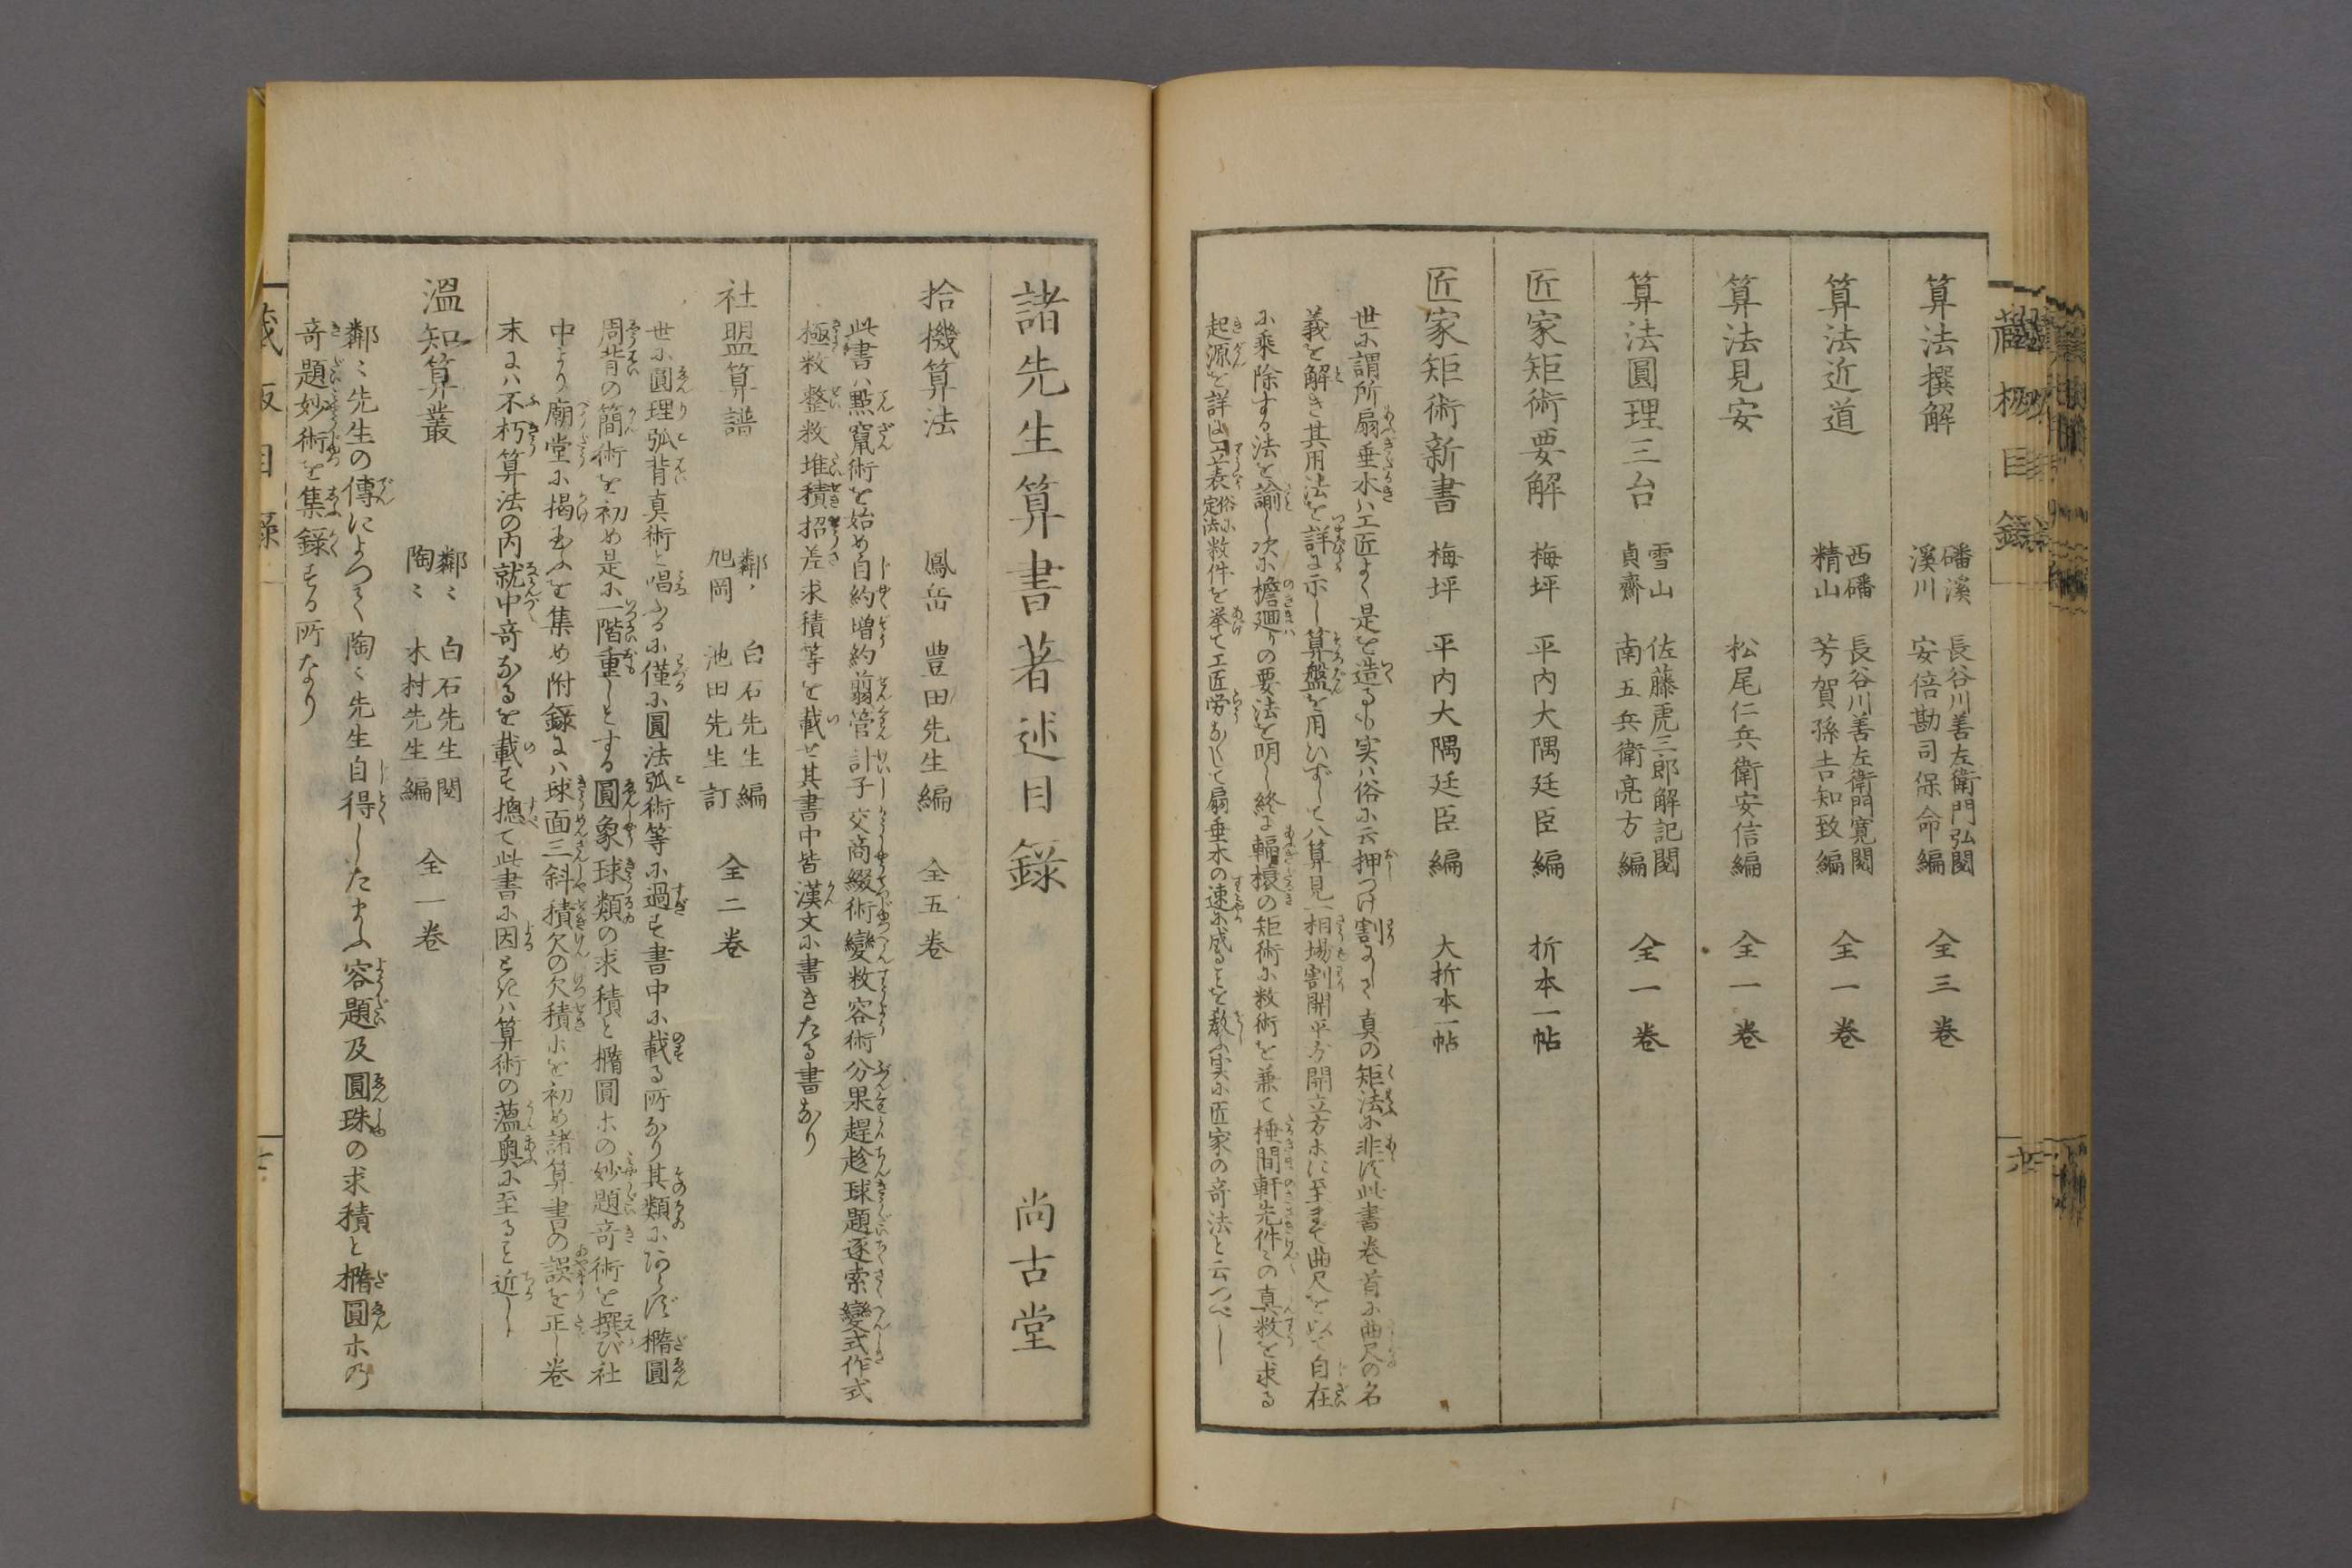 藏板目録
算法撰解 磻溪 長谷川善左衛門弘閲
溪川 安倍勘司保命編 全三巻
算法近道 西磻 長谷川善左衛門寛閲
精山 芳賀孫吉知致編 全一巻
算法見安 松尾仁兵衛安信編 全一巻
算法圓理三台 雪山 佐藤虎三郎解記閲
貞齋 南五兵衛亮方編 全一巻
匠家矩術要解 梅坪 平内大隅廷臣編 折本一帖
匠家矩術新書 梅坪 平内大隅廷臣編 大折本一帖
世に謂所扇垂木ハ工匠よく是を造るも実ハ俗に云押つけ割にして真の矩法に非ず此書巻首に曲尺の名
義を解き其用法を詳に示し算盤を用ひずして八算見一相場割開平方開立方ホに至まで曲尺を以て自在
に乘除する法を諭し次に檐廻りの要法を明し終に輻棰の矩術に数術を兼て棰間軒先件〻の真数を求る
起源を詳に立表俗に定法数件を挙て工匠労なくして扇垂木の速に成ることを教ふ実に匠家の竒法と云つべし
六
諸先生算書著述目録 尚古堂
拾機算法 鳳岳 豊田先生編 全五巻
此書ハ點竄術を始め自約増約翦管計子交商綴術變数容術分果趕趁球題逐索變式作式
極数整数堆積招差求積等を載せ其書中皆漢文に書きたる書なり
社盟算譜 鄰〻 白石先生編
旭岡 池田先生訂 全二巻
世に圓理弧背真術と唱ふるに僅に圓法弧術等に過ず書中に載る所なり其類にあらず橢圓
周背の簡術を初め是に一階重しとする圓象球類の求積と橢圓ホの妙題竒術を撰び社
中より廟堂に揭るを集め附録にハ球面三斜積欠の欠積ホを初め諸算書の誤を正し巻
末にハ不朽算法の内就中竒なるを載す摠て此書に因ときハ算術の薀奥に至ること近し
溫知算叢 鄰〻 白石先生閲
陶〻 木村先生編 全一巻
鄰〻先生の傳によつて陶〻先生自得したまふ容題及圓珠の求積と橢圓ホの
竒題妙術を集録する所なり
藏板目録